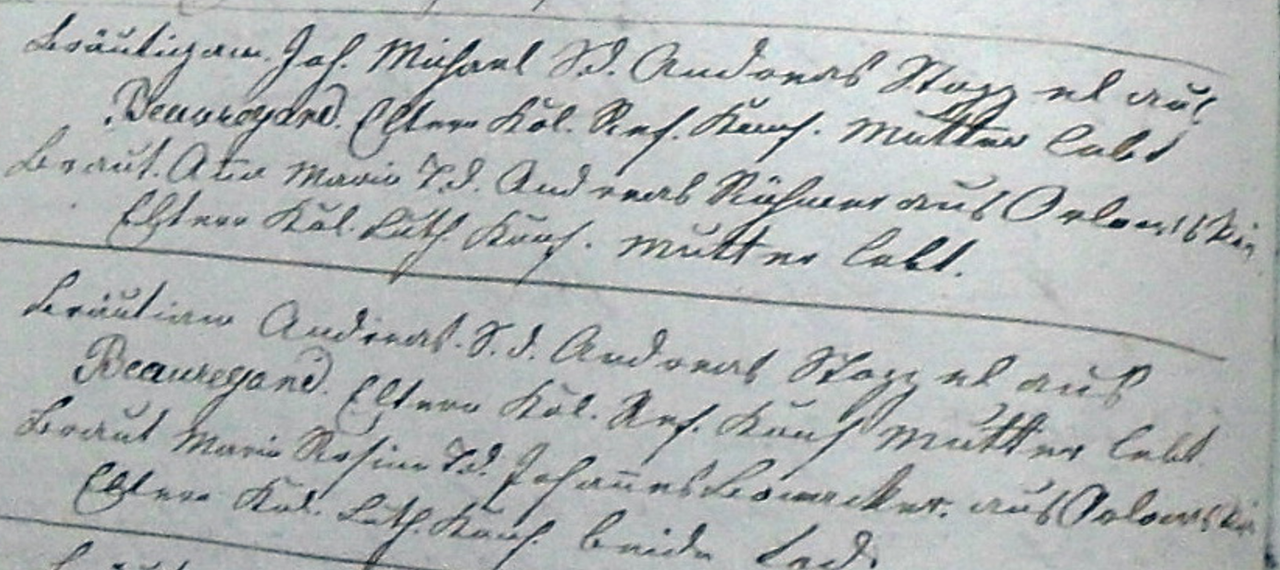 Bräutigam. Joh. Michael S. d. Andreas Stoppel aus
Beauregard. Eltern Kol. Ref. Konf. Mutter lebt
Braut. Marie T. d. Andreas aus Orlowskin
Eltern Kol. Luth. Konf. Mutter lebt.
Bräutiam Andreas. S. d. Andreas Stoppel aus
Beauregard. Eltern Kol. Ref. Konf Mutter lebt
Braut Marie Rosine T. d. Johannes aus Orlowskin
Eltern Kol. Luth. Konf. beide